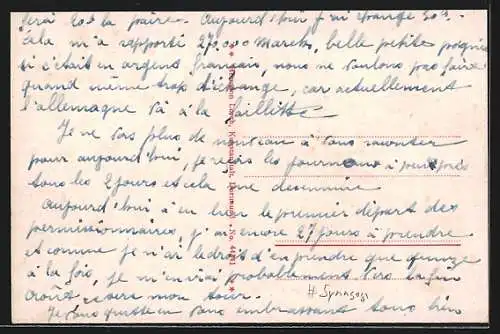 ferai 20s la paire. Aujourd'hui j'ai changé 30s.
Cela m'a rapporté 270,000 Marcks, belle petite poignée
si c'était en argent français, nous ne voulons pas faire
quand même trop d'échange, car actuellement
l'allemagne va à la faillitte
Je ne vois plus de nouveau à vous raconter
pour aujourd'hui, je reçois les journaux à peu près
tous les 2 jours et cela me desennuie
Aujourd'hui à eu lieu le premier départ des
permissionnaires, j'ai encore 27 jours à prendre
et comme je n'ai le droit d'en prendre que quinze
à la fois, je n'irai probablement vers la fin
Août, ce sera mon tour.
# Synagog
Je vous quitte en vous embrassant tous bien